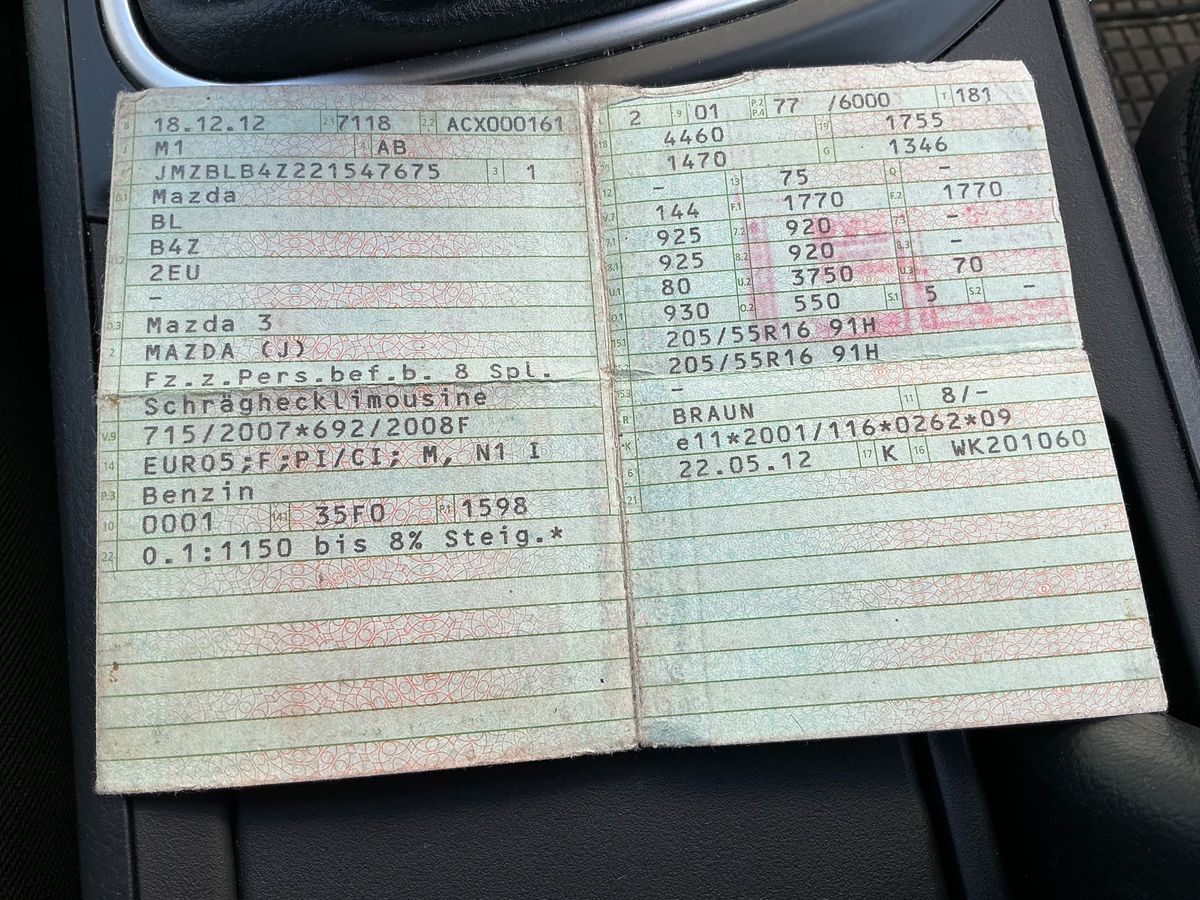 B 18.12.12 2.1 7118 2.2 ACX000161
J M1 4 AB
E JMZBLB4Z221547675 3 1
D.1 Mazda
BL
D.2 B4Z
2EU
–
D.3 Mazda 3
2 MAZDA (J)
Fz.z.Pers.bef.b. 8 Spl.
Schräghecklimousine
V.9 715/2007*692/2008F
14 EURO5;F;PI/CI; M, N1 I
P.3 Benzin
10 0001 14.1 35F0 P.1 1598
22 O.1:1150 bis 8% Steig.*
L 2 9 01 P.2 P.4 77 /6000 T 181
18 4460 19 1755
20 1470 G 1346
12 – 13 75 Q –
V.7 144 F.1 1770 F.2 1770
7.1 925 7.2 920 7.3 –
8.1 925 8.2 920 8.3 –
U.1 80 U.2 3750 U.3 70
O.1 930 O.2 550 S.1 5 S.2 –
15.1 205/55R16 91H
15.2 205/55R16 91H
15.3 –
R BRAUN 11 8/–
K e11*2001/116*0262*09
6 22.05.12 17 K 16 WK201060
21